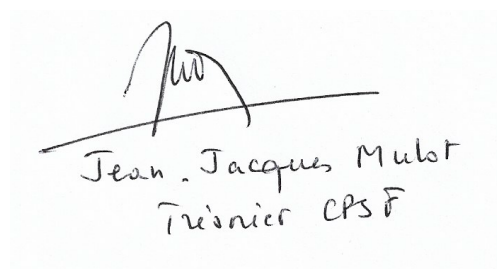 Jean-Jacques Mulot
Trésorier CPSF